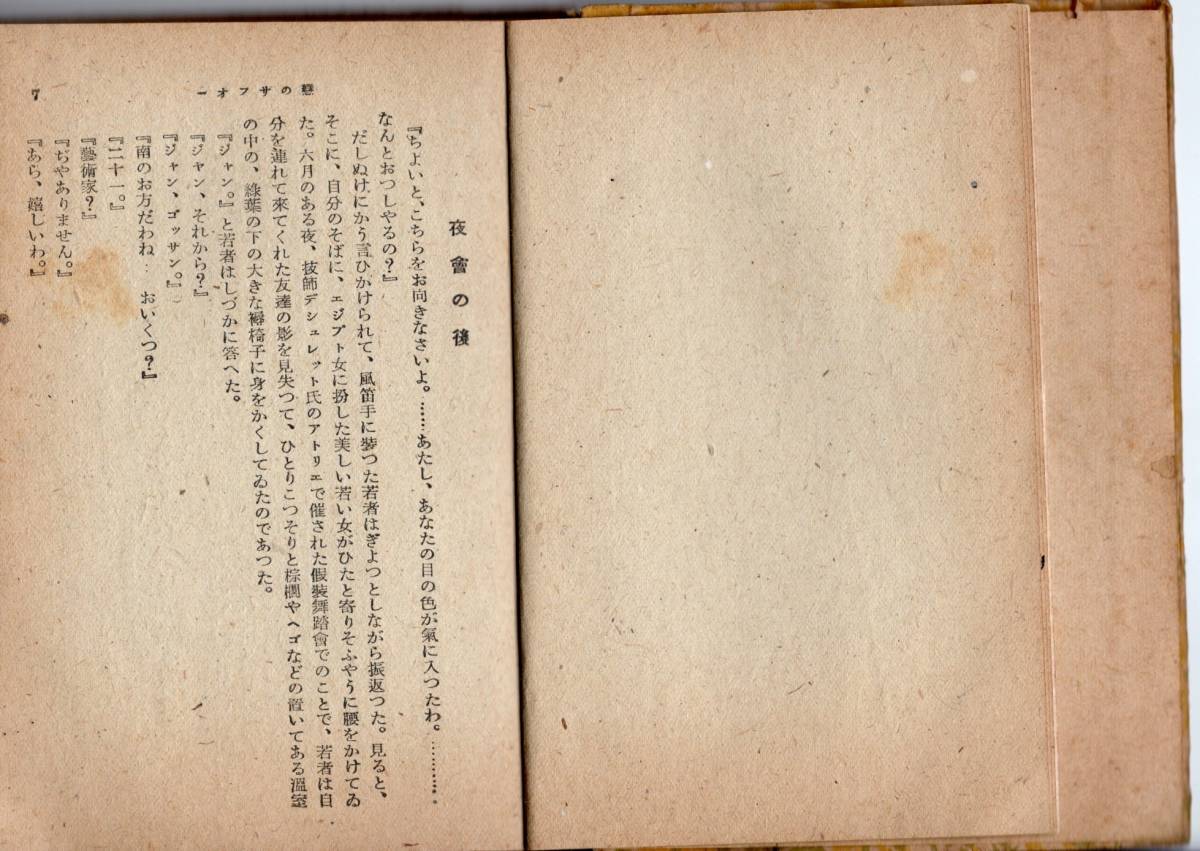 戀のサフオー
7
夜會の後
『ちよいと、こちらをお向きなさいよ。……あたし、あなたの目の色が氣に入つたわ。…………。
なんとおつしやるの?』
だしぬけにかう言ひかけられて、風笛手に裝つた若者はぎよつとしながら振返つた。見ると、
そこに、自分のそばに、エジプト女に扮した美しい若い女がひたと寄りそふやうに腰をかけてゐ
た。六月のある夜、技師デシュレット氏のアトリエで催された假裝舞踏會でのことで、若者は自
分を連れて來てくれた友達の影を見失つて、ひとりこつそりと棕櫚やヘゴなどの置いてある溫室
の中の、綠葉の下の大きな褥椅子に身をかくしてゐたのであつた。
『ジャン。』と若者はしづかに答へた。
『ジャン、それから?』
『ジャン、ゴッサン。』
『南のお方だわね‥おいくつ?』
『二十一。』
『藝術家?』
『ぢやありません。』
『あら、嬉しいわ。』